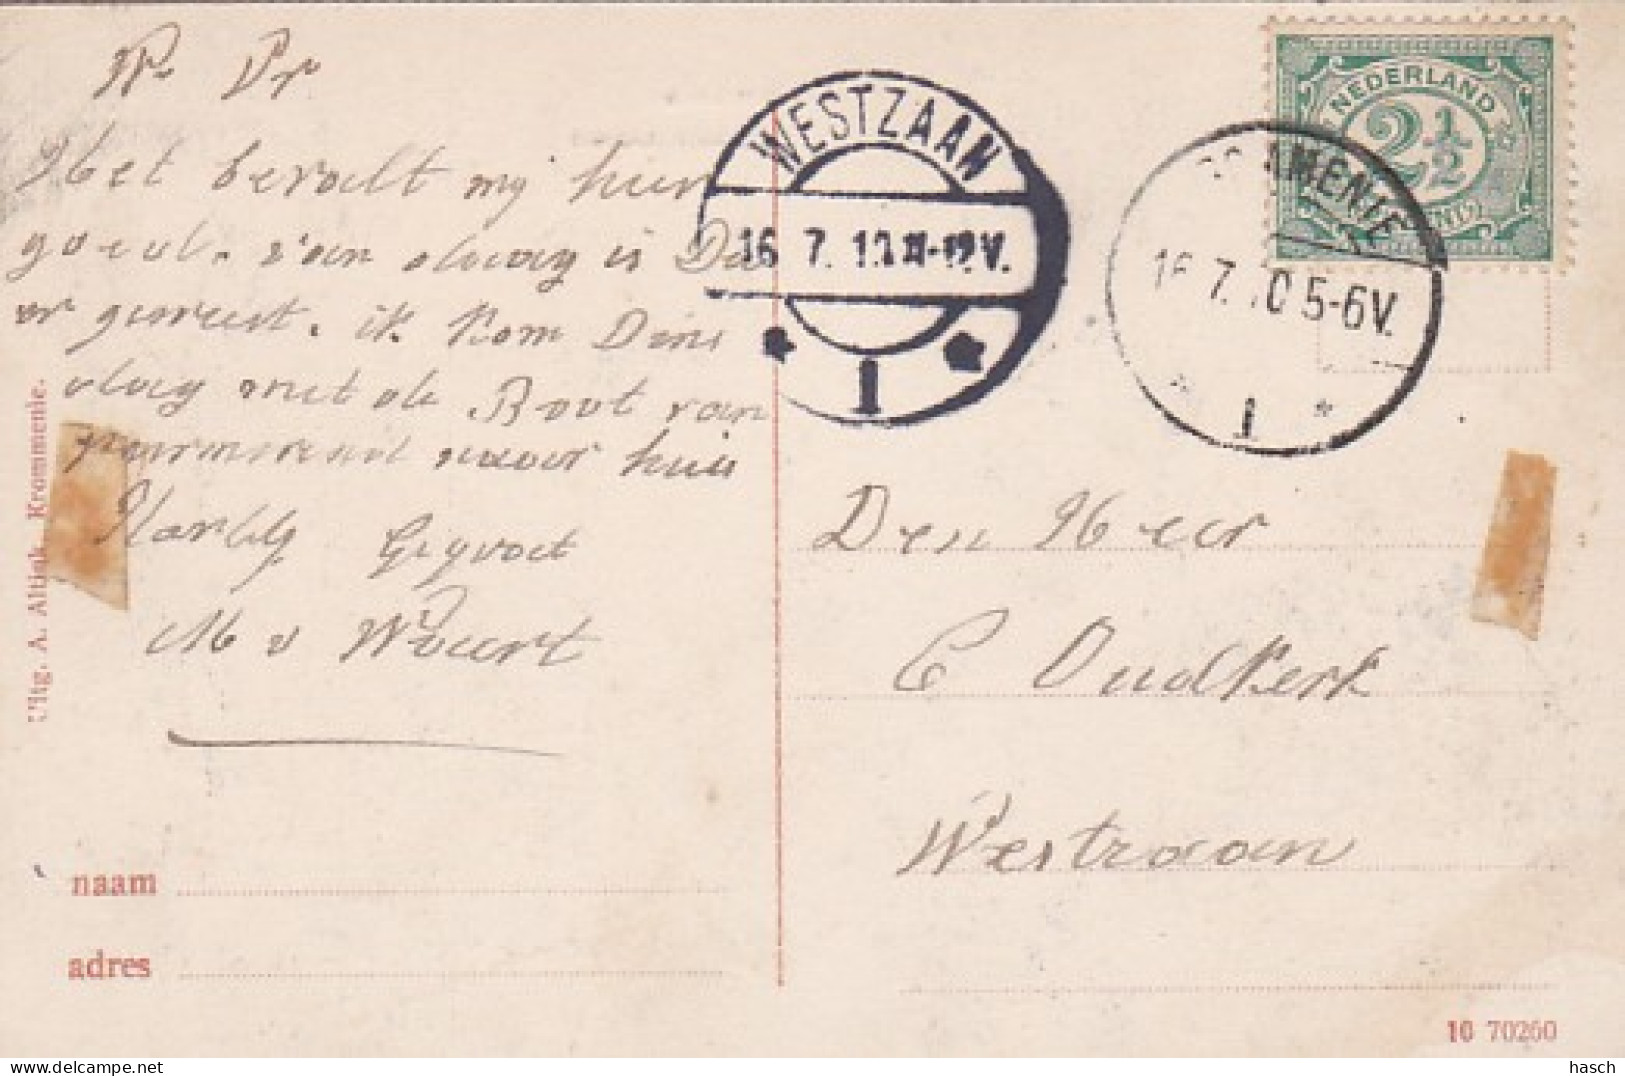 W. Vr
Het bevalt mij hier
goed. van daag is Da
er geweest. ik kom Dins
dag met de Boot van
purmerend naar huis
Hartelijk Gegroet
M v Weert
Uitg. A. Altink, Krommenie.
naam
adres
WESTZAAN
16 7.10 11-12 V.
1
NEDERLAND
2½
CENT
MENIE
16 7.10 5-6V.
1
Den Heer
C Oudkerk
Westzaan
16 70260
hasch